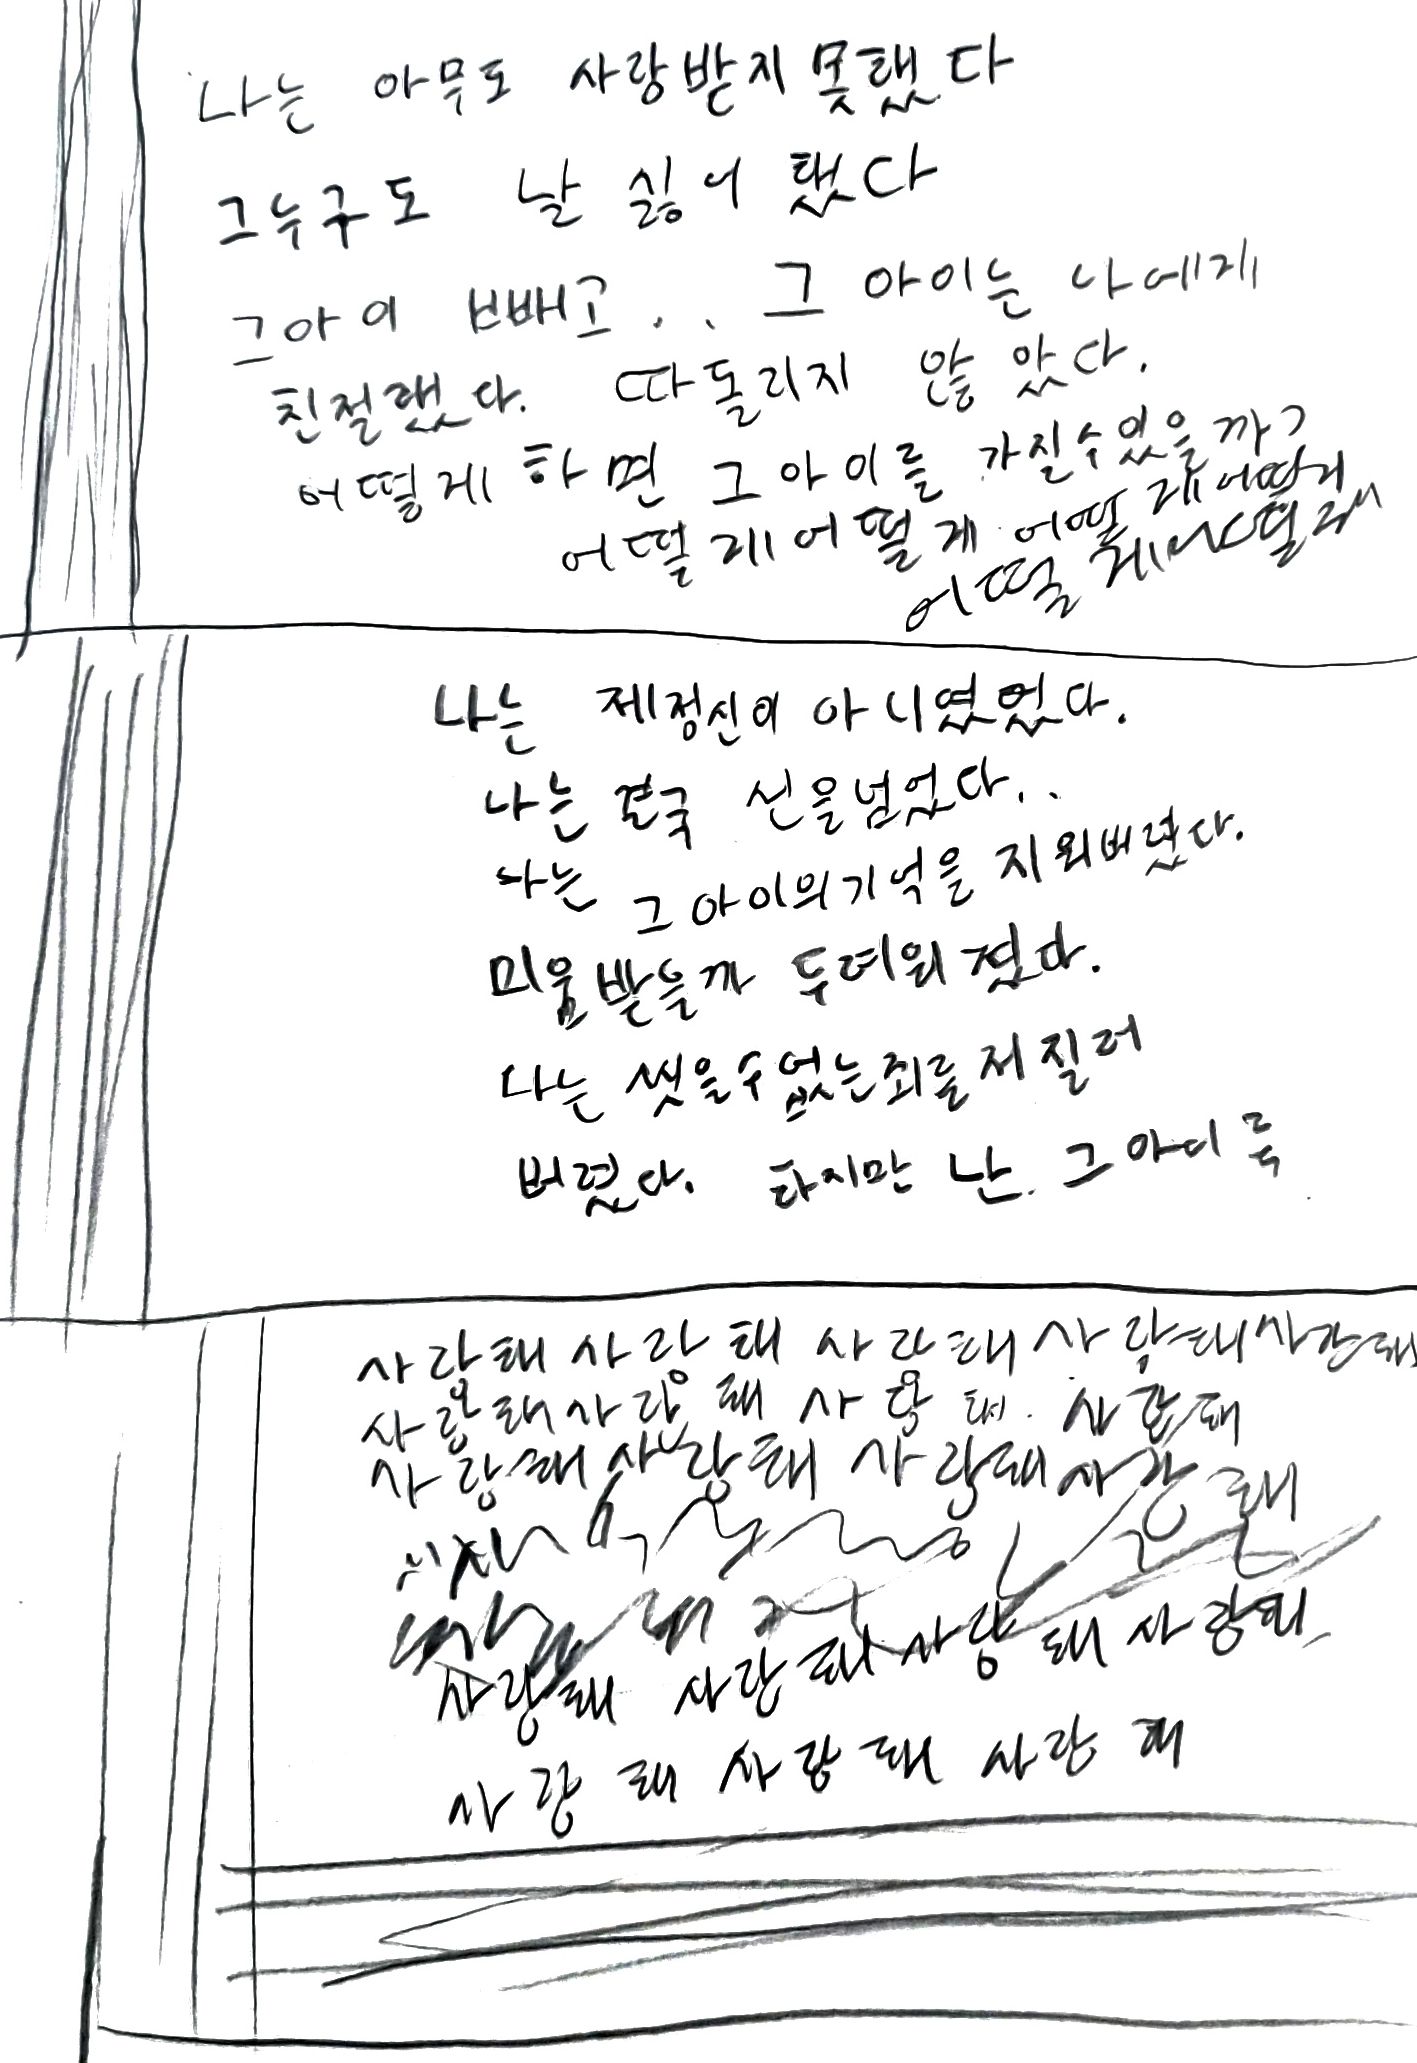 나는 아무도 사랑받지 못했다
그누구도 날 싫어 했다
그아이 빼고.. 그 아이는 나에게
친절했다. 따돌리지 않았다.
어떻게 하면 그 아이를 가질수있을까?
어떻게 어떻게 어떻게 어떻게
어떻게 어떻게
나는 제정신이 아니였었다.
나는 결국 선을넘었다..
나는 그아이의기억을 지워버렸다.
미움받을까 두려워졌다.
나는 씻을수없는죄를저질러
버렸다. 하지만 난 그 아이를
사랑해 사랑해 사랑해 사랑해 사랑해
사랑해 사랑해 사랑해 사랑해
사랑해 사랑해 사랑해 사랑해
사랑해 사랑해 사랑해 사랑해
사랑해 사랑해 사랑해